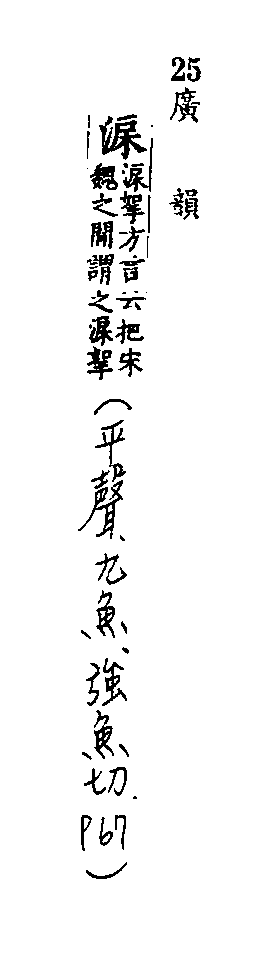 25廣韻
淭
淭挐方言云把宋
魏之間謂之淭挐
(平聲、九魚、強魚切. P67)